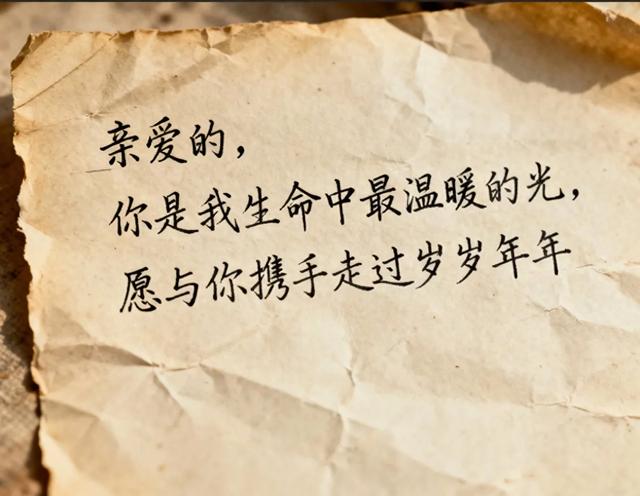 亲爱的，
你是我生命中最温暖的光，
愿与你携手走过岁岁年年